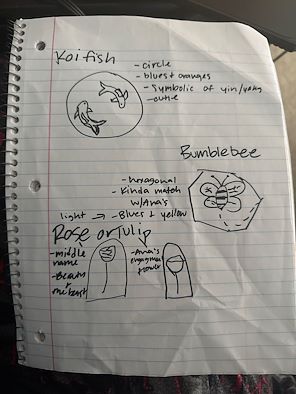 Koi fish
- circle
- blues + oranges
- Symbolic of yin/yang
- cutie
Bumblebee
- hexagonal
- Kinda match
w/Ana's
light → - Blues + yellow
Rose or Tulip
- middle
name
- Beauty
+
the beast
- Ana's
engagement
flower